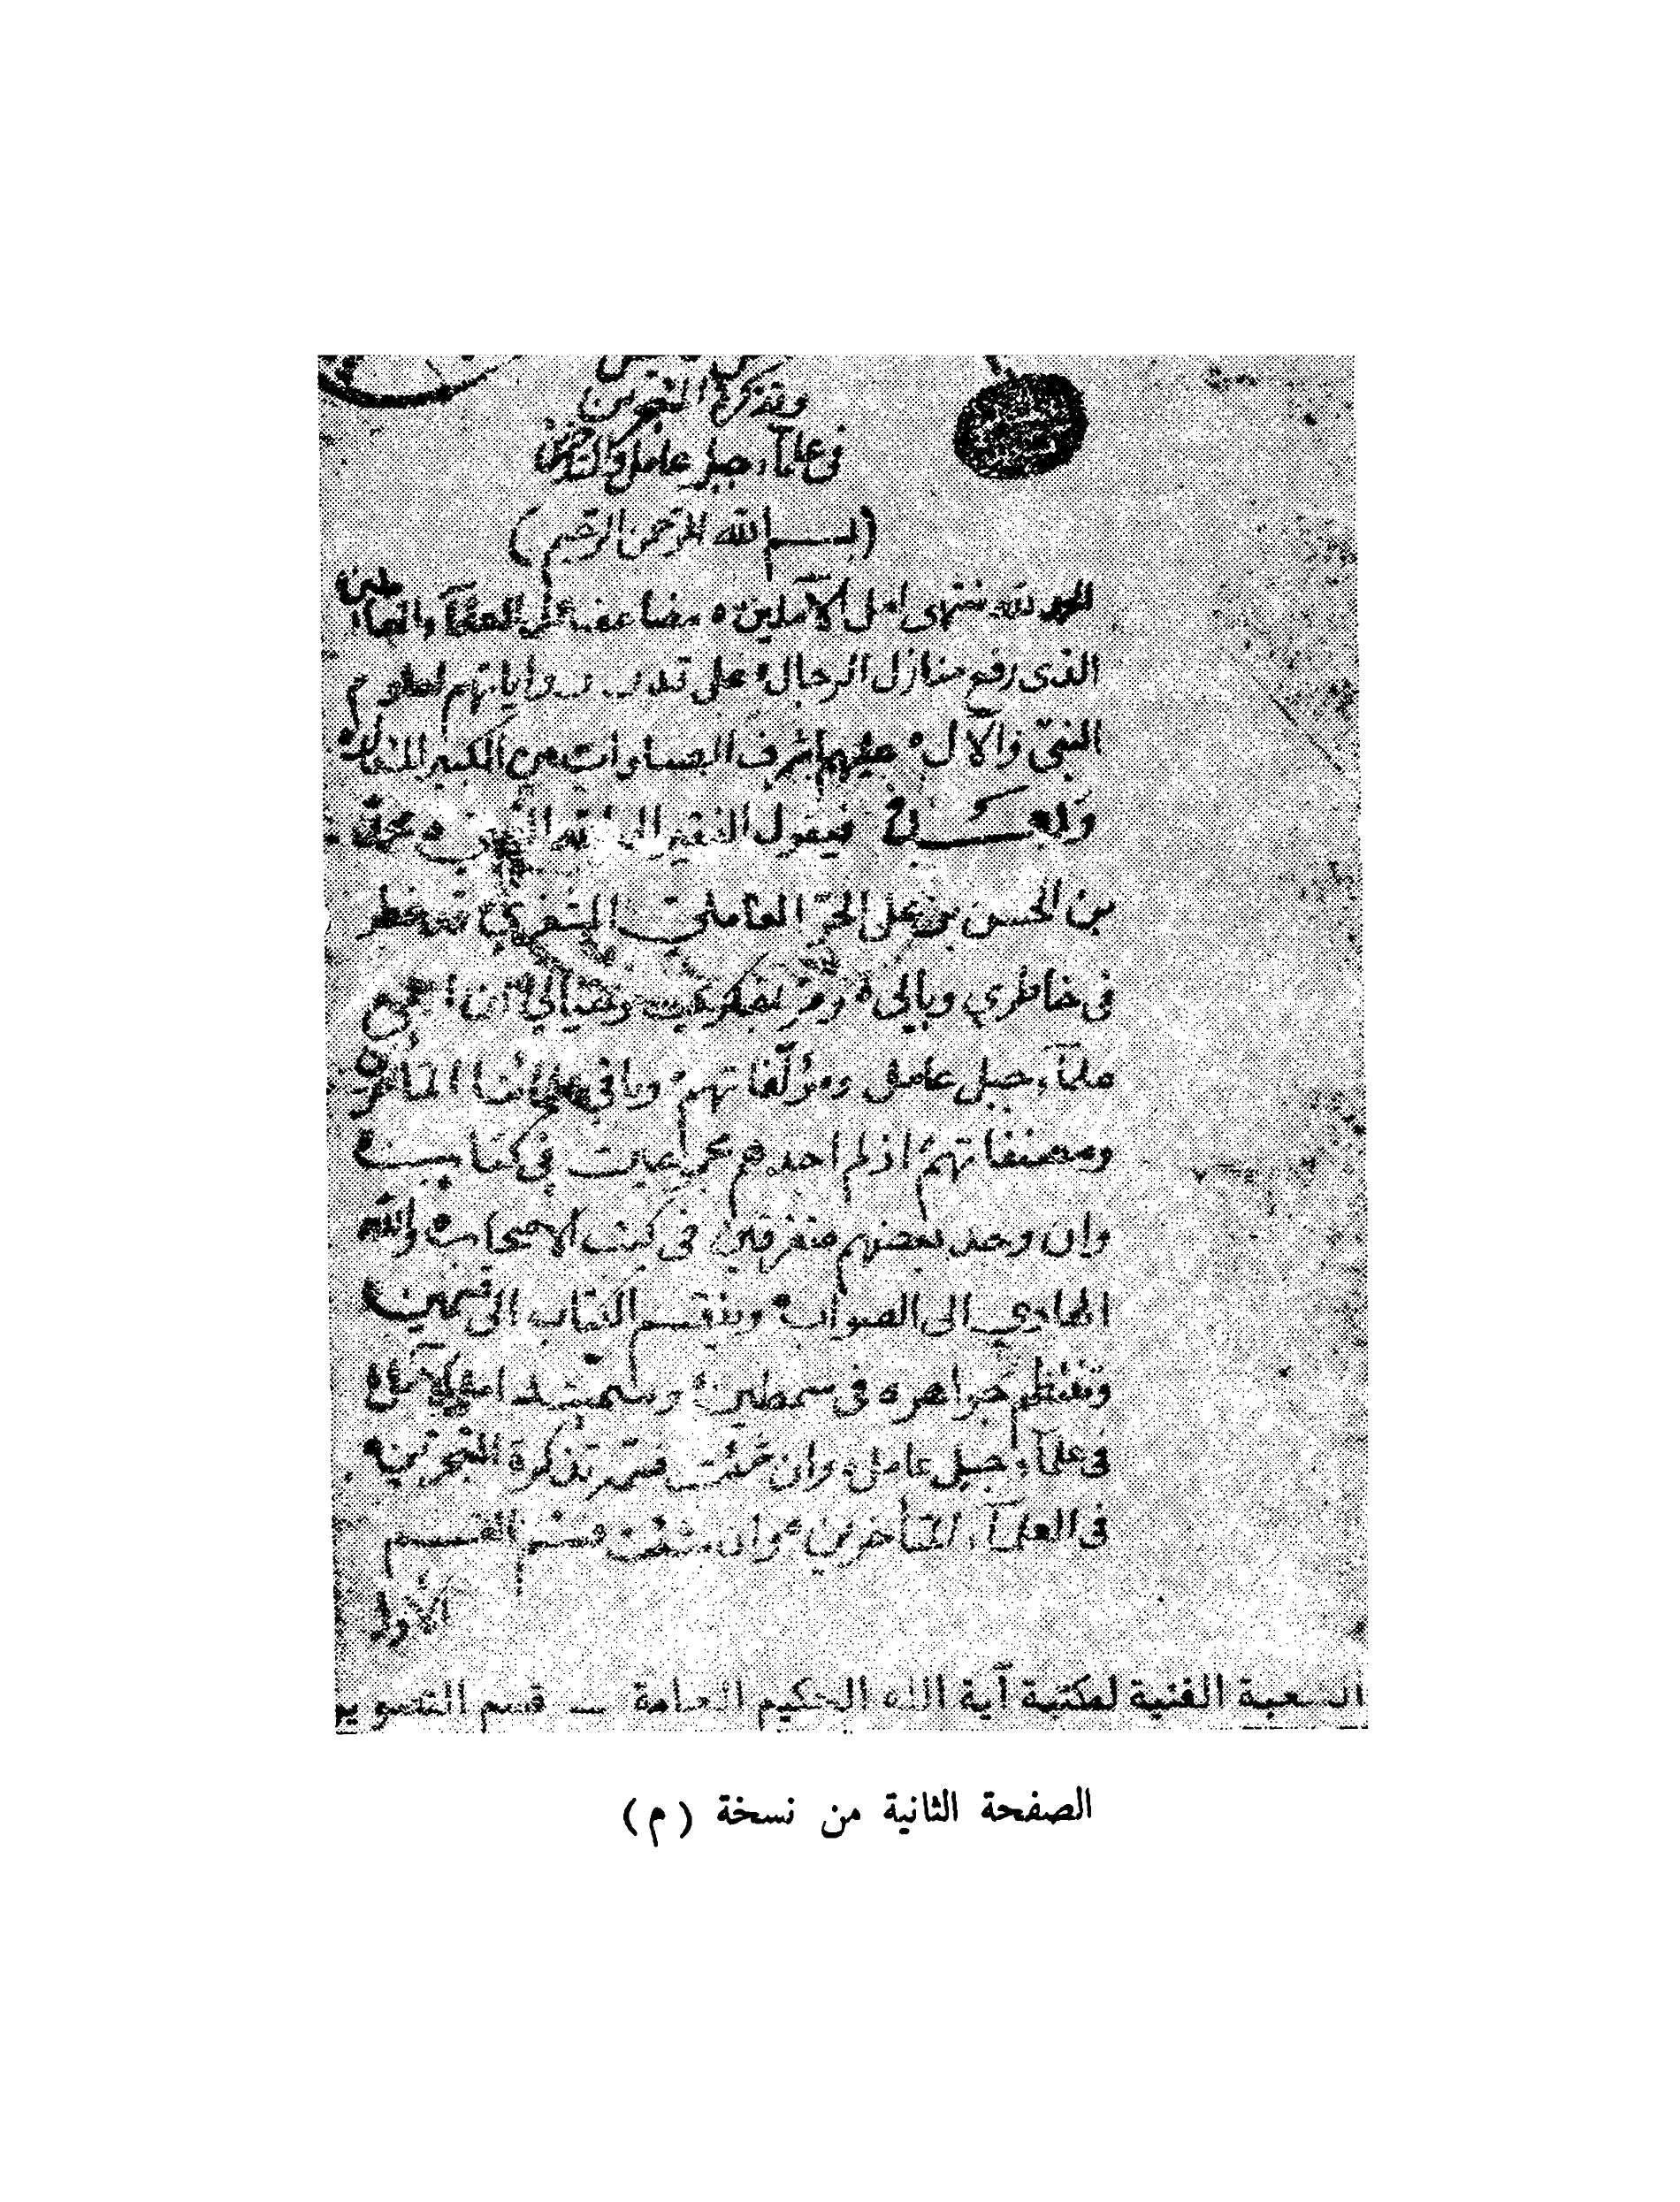 وتذكرة المتبحرين
في علمآء جبل عامل والمتأخرين
(بسم الله الرحمن الرحيم)
الحمد لله منتهى امل الآملين ه مضاعف العلمآء والعاملين
الذى رفع منازل الرجال على قدر رواياتهم لعلوم
النبى والآل ه عليهم اشرف الصلوات من الكبير المتعال
وبعد فيقول الفقير الى الله الغنى محمد
بن الحسن بن على الحرّ العاملي المشغري قد خطر
فى خاطري وبالى ه ومرّ بفكري وخيالي ان اجمع
علمآء جبل عامل ومؤلّفاتهم وباقى علمائنا المتأخرين
ومصنفاتهم اذ لم اجدهم مجموعين فى كتاب
وان وجد بعضهم متفرقين فى كتب الاصحاب والله
الهادي الى الصواب وينقسم الكتاب الى قسمين
وتنتظم جواهره فى سمطين وسميته امل الآمل
فى علمآء جبل عامل وان شئت فسمه تذكرة المتبحرين
فى العلمآء المتأخرين وان شئت فسم القسم
الأول
الشعبة الفنية لمكتبة آية الله الحكيم العامة — قسم التصوير
الصفحة الثانية من نسخة (م)